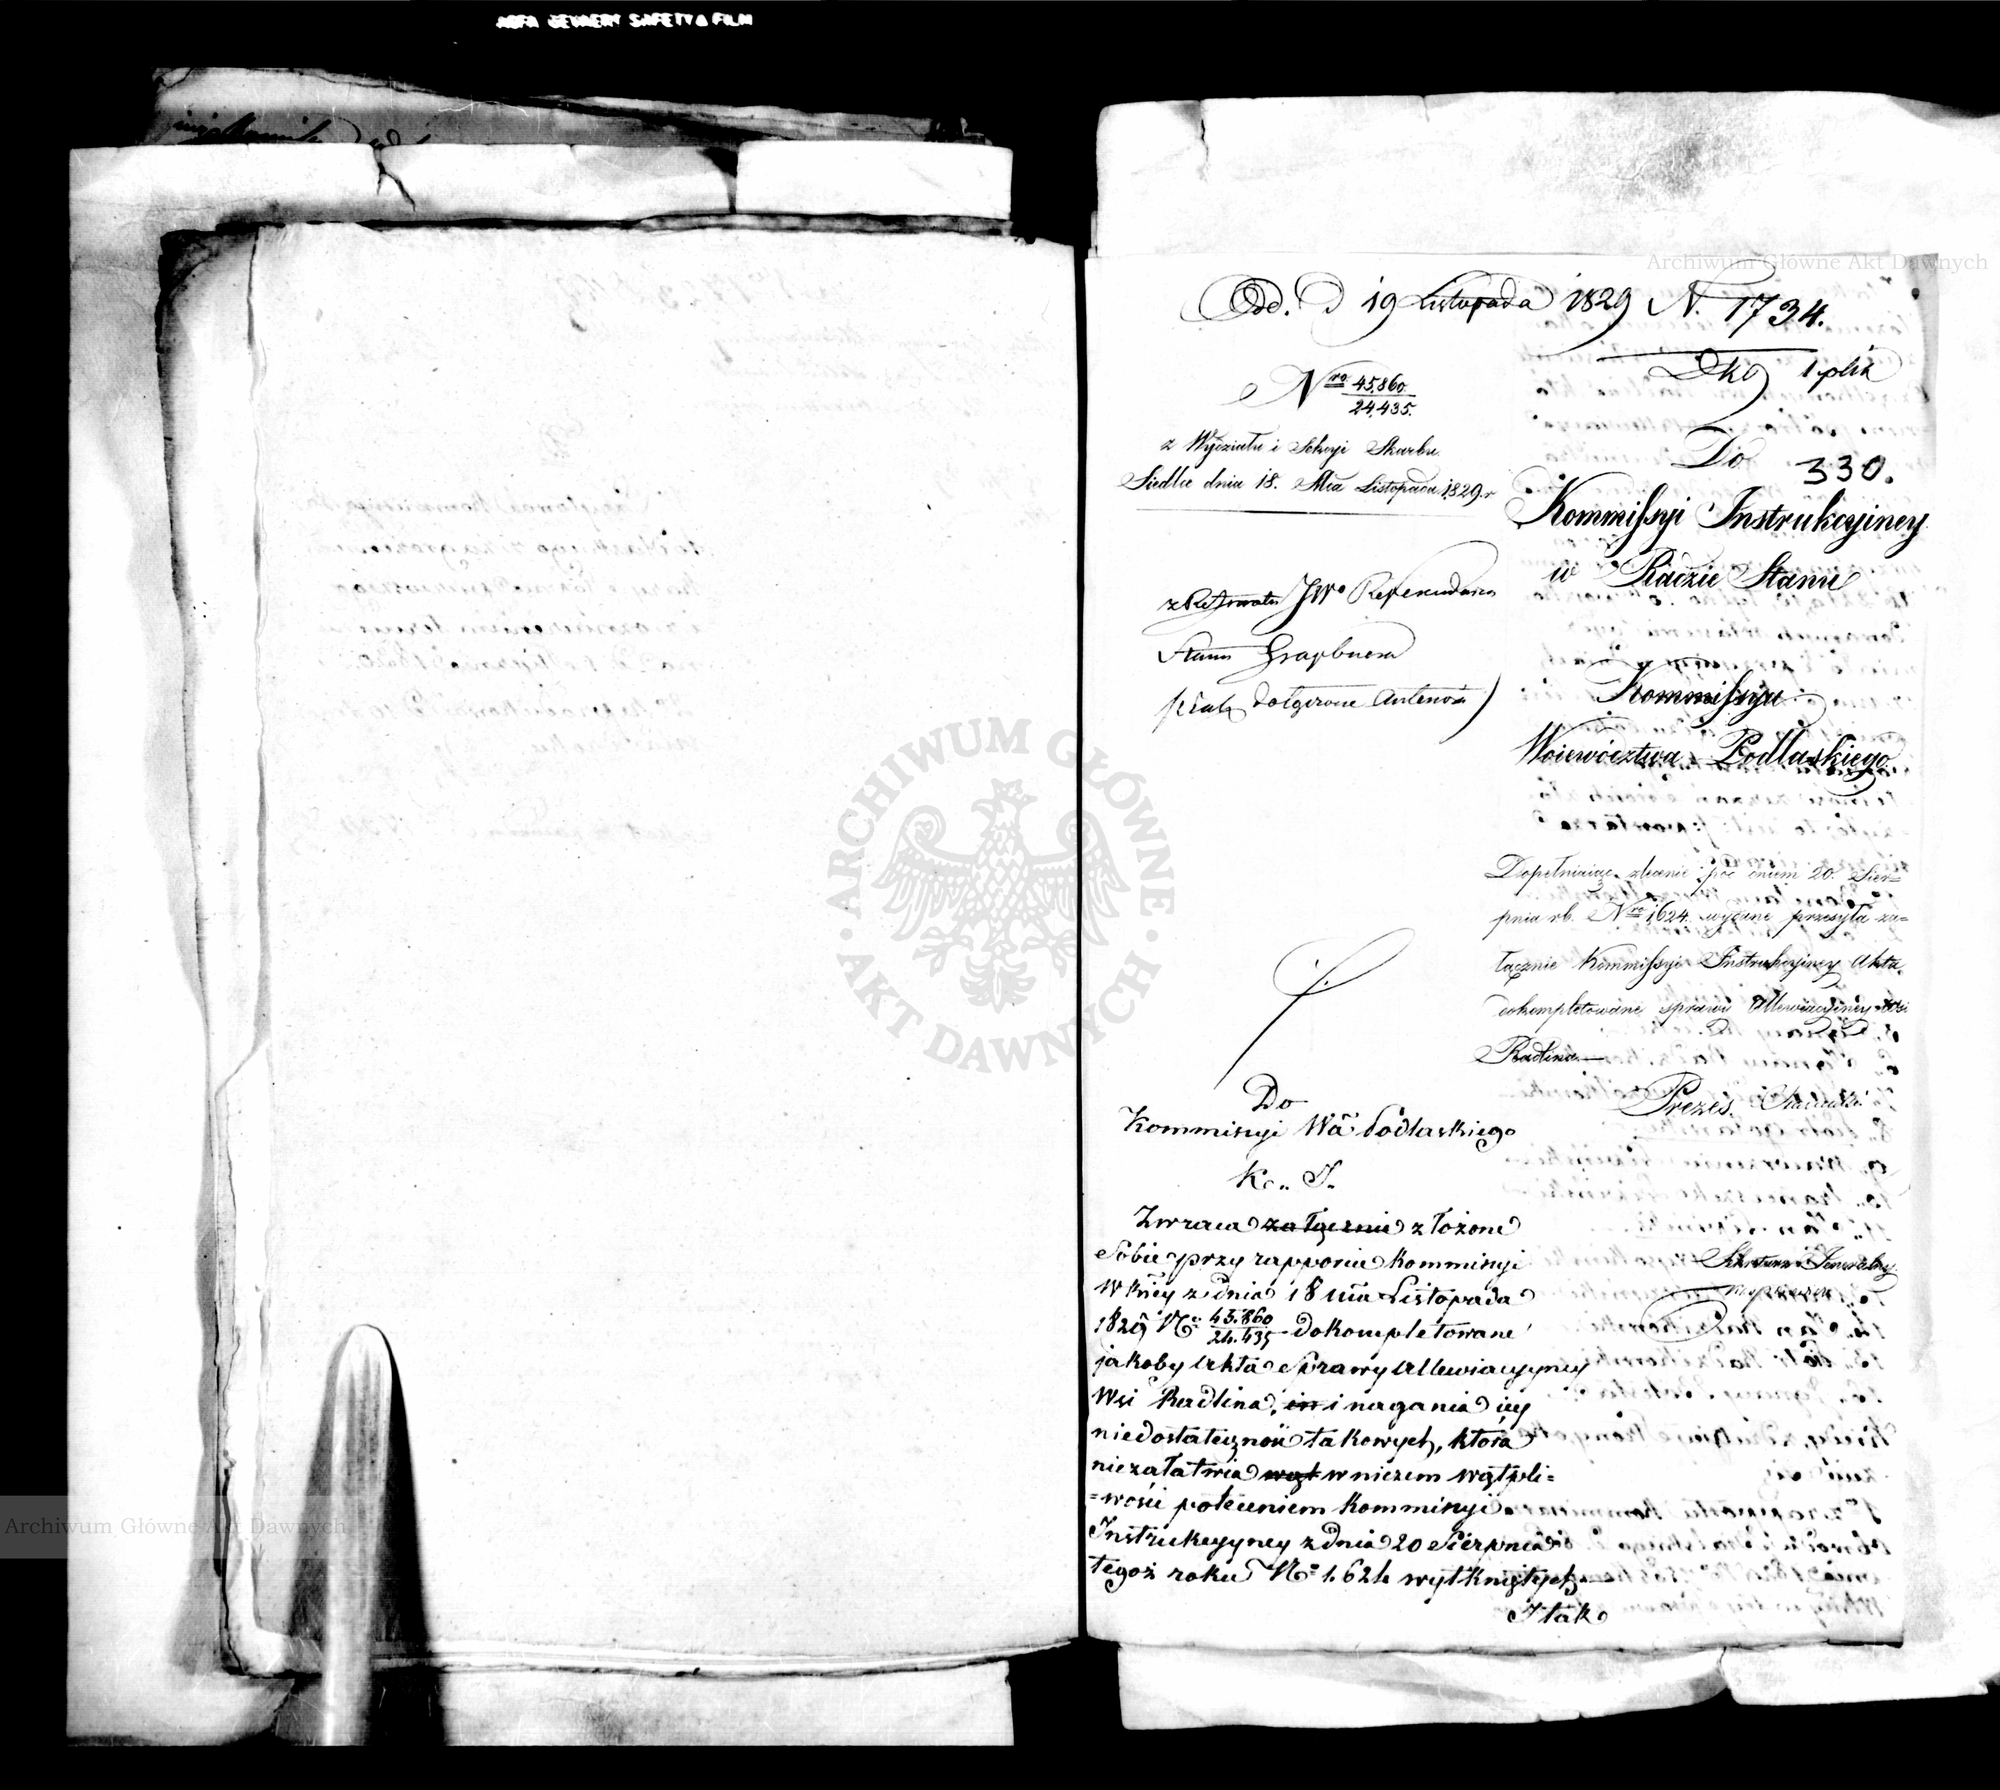 AGFA GEVAERT SAFETY FILM
Archiwum Główne Akt Dawnych
Od. D 19 Listopada 1829 N. 1734.
1 plik
Nro 45,860.
24,435.
z Wydziału i Sekcyi Skarbu
Siedlce dnia 18. Mca Listopada 1829. r
Do
330.
Kommissyi Instrukcyiney
w Radzie Stanu
z Referatu JWo Referendarza
Stanu
Kommissyia
Woiewództwa Podlaskiego
Dopełniaiąc zlecenie pod dniem 20. Sier=
pnia rb. Nro 1,624. wydane przesyła za=
łącznie Kommissyi Instrukcyiney Akta
dokompletowane sprawy Allewiacyiney Wsi
Radlina.—
Prezes
Sekretarz Jeneralny
Do
Kommissyi Wa Podlaskiego
K.. I..
Zwraca załącznie złożone
Sobie przy rapporcie Kommissyi
Wkiey z dnia 18 mca Listopada
1829 No 45.860
24.435 dokompletowane
jakoby Akta Sprawy Allewiacyyney
Wsi Radlina, in i nagania iey
niedostateczność takowych, która
niezałatwia wąt w niczem wątpli=
=wości poleceniem Kommissyi
Instrukcyyney z dnia 20 Sierpnia
tegoż roku No 1.624 wytkniętych.—
I tak
ARCHIWUM GŁÓWNE AKT DAWNYCH
Archiwum Główne Akt Dawnych